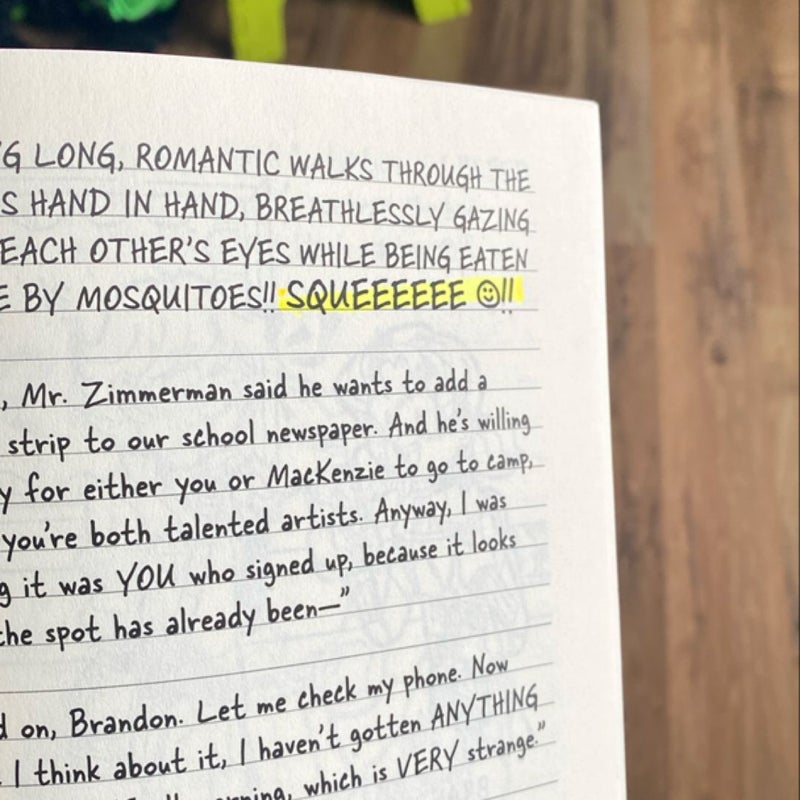 G LONG, ROMANTIC WALKS THROUGH THE
S HAND IN HAND, BREATHLESSLY GAZING
EACH OTHER'S EYES WHILE BEING EATEN
E BY MOSQUITOES!! SQUEEEEEE ☺!!
, Mr. Zimmerman said he wants to add a
strip to our school newspaper. And he's willing
y for either you or MacKenzie to go to camp,
you're both talented artists. Anyway, I was
g it was YOU who signed up, because it looks
the spot has already been—"
d on, Brandon. Let me check my phone. Now
I think about it, I haven't gotten ANYTHING
which is VERY strange."